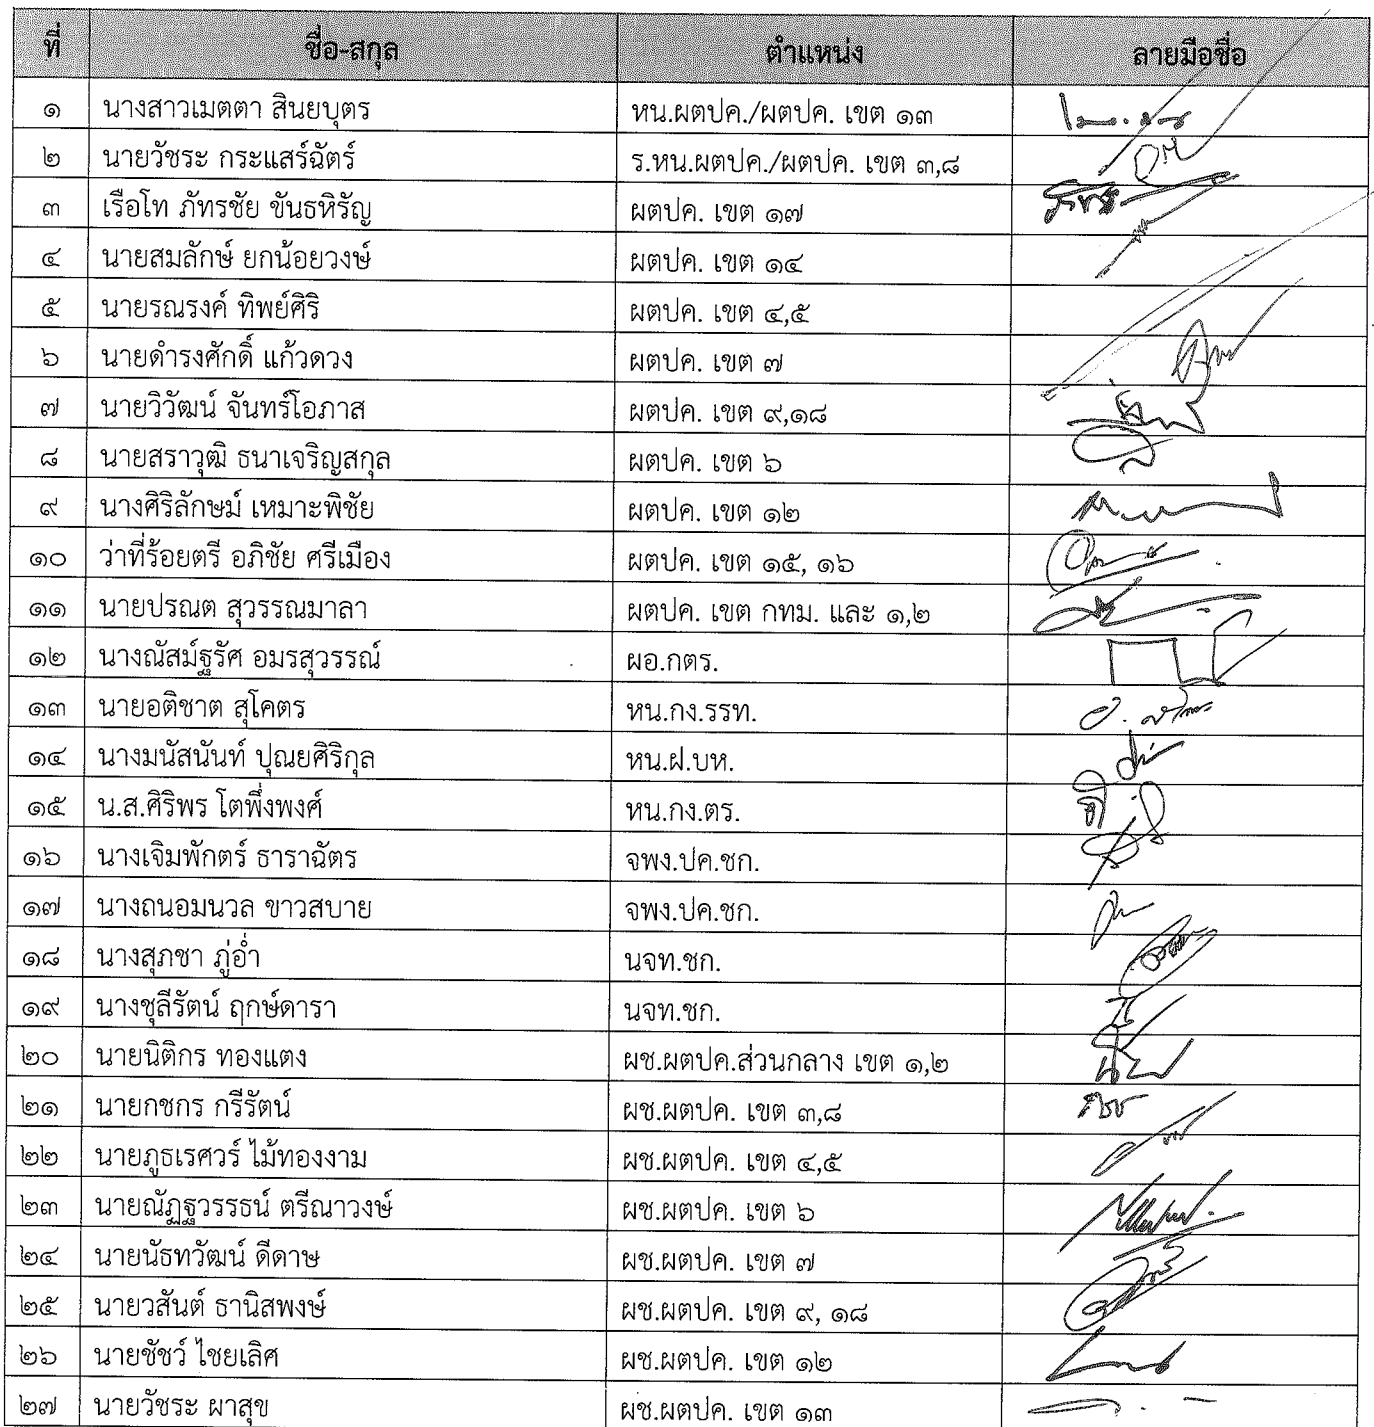 ที่ ชื่อ-สกุล ตำแหน่ง ลายมือชื่อ
๑ นางสาวเมตตา สินยบุตร หน.ผตปค./ผตปค. เขต ๑๓
๒ นายวัชระ กระแสร์ฉัตร์ ร.หน.ผตปค./ผตปค. เขต ๓,๘
๓ เรือโท ภัทรชัย ขันธหิรัญ ผตปค. เขต ๑๗
๔ นายสมลักษ์ ยกน้อยวงษ์ ผตปค. เขต ๑๔
๕ นายรณรงค์ ทิพย์ศิริ ผตปค. เขต ๔,๕
๖ นายดำรงศักดิ์ แก้วดวง ผตปค. เขต ๗
๗ นายวิวัฒน์ จันทร์โอภาส ผตปค. เขต ๙,๑๘
๘ นายสราวุฒิ ธนาเจริญสกุล ผตปค. เขต ๖
๙ นางศิริลักษม์ เหมาะพิชัย ผตปค. เขต ๑๒
๑๐ ว่าที่ร้อยตรี อภิชัย ศรีเมือง ผตปค. เขต ๑๕, ๑๖
๑๑ นายปรณต สุวรรณมาลา ผตปค. เขต กทม. และ ๑,๒
๑๒ นางณัสม์ฐรัศ อมรสุวรรณ์ ผอ.กตร.
๑๓ นายอติชาต สุโคตร หน.กง.รรท.
๑๔ นางมนัสนันท์ ปุณยศิริกุล หน.ฝ.บห.
๑๕ น.ส.ศิริพร โตพึ่งพงศ์ หน.กง.ตร.
๑๖ นางเจิมพักตร์ ธาราฉัตร จพง.ปค.ชก.
๑๗ นางถนอมนวล ขาวสบาย จพง.ปค.ชก.
๑๘ นางสุภชา ภู่อ่ำ นจท.ชก.
๑๙ นางชุลีรัตน์ ฤกษ์ดารา นจท.ชก.
๒๐ นายนิติกร ทองแตง ผช.ผตปค.ส่วนกลาง เขต ๑,๒
๒๑ นายกชกร กรีรัตน์ ผช.ผตปค. เขต ๓,๘
๒๒ นายภูธเรศวร์ ไม้ทองงาม ผช.ผตปค. เขต ๔,๕
๒๓ นายณัฏฐวรรธน์ ตรีณาวงษ์ ผช.ผตปค. เขต ๖
๒๔ นายนัธทวัฒน์ ดีดาษ ผช.ผตปค. เขต ๗
๒๕ นายวสันต์ ธานิสพงษ์ ผช.ผตปค. เขต ๙, ๑๘
๒๖ นายชัชว์ ไชยเลิศ ผช.ผตปค. เขต ๑๒
๒๗ นายวัชระ ผาสุข ผช.ผตปค. เขต ๑๓